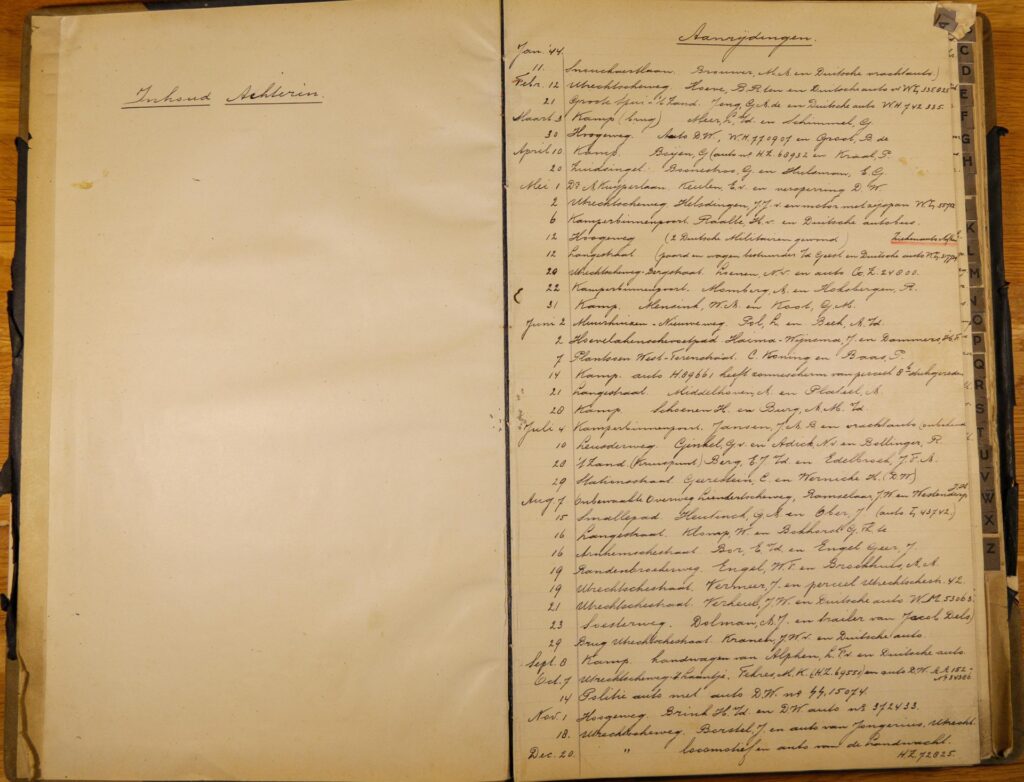 Inhoud Achterin.
Aanrijdingen.
Jan '44.
11. Snouckaertlaan. Brouwer, M.A. en Duitsche vrachtauto.
Febr. 12 Utrechtscheweg. Hoeve, B.R. ten en Duitsche auto
21 Groote Spui - 't Zand. Jong, G.A. de en Duitsche auto W.H. 742335.
Maart 3 Kamp (brug) Meer, L. v.d. en Schimmel, G.
30 Hoogeweg Auto D.W., W.H. 770907 en Groot, B. de
April 10 Kamp. Booijen, G (auto no H.Z. 60932 en Kraal, P.
20 Zuidsingel. en Hulsman, E.G.
Mei 1 Dr. A. Kuyperlaan. Keulen, E. v. en versperring D.W.
2 Utrechtscheweg. Helsdingen, J.J. v. en motor met zijspan
6 Kamperbinnenpoort. Raalte, H. v. en Duitsche autobus.
12 Hoogeweg (2 Duitsche Militairen gewond)
12 Langestraat (paard en wagen bestuurder v.d. Geest en Duitsche auto
20 Utrechtscheweg-Bergstraat. Loenen, N. v. en auto 24800.
22 Kamperbinnenpoort. Momberg, A. en Hoksbergen, R.
31 Kamp. Mensink, W.A. en Koot, G.M.
Juni 2 Muurhuizen - Nieuweweg. Pol, L. en Beek, A. v.d.
2 Hoevelakenschevoetpad Haima-Wijnsma, J. en Dammers
7 Plantsoen West-Torenstraat. C. Koning en Baas, P.
14 Kamp. auto H.89661 heeft zonnescherm van perceel stukgereden
21 Langestraat. Middelhoven, A. en Plaisel, A.
28 Kamp Schoenen H. en Burg, A.M. v.d.
Juli 4 Kamperbinnenpoort. Jansen, J.A.B. en vrachtauto (onbekend
10 Leusderweg. Ginkel, G. v. en Adrich, N. v. en Bottinger, R.
20 't Zand (Kruispunt) Berg, E.J. v.d. en Edelbroek, J.F.A.
29 Stationsstraat Gerestein, C. en Wernicke H. (D.W)
Aug. 7 Onbewaakte Overweg Liendertscheweg, Ramselaar, J.W. en Westendorp
15 Smallepad. Heutinck, G.A. en Ober, J. (auto 43742.)
16 Langestraat. Klomp, W. en Bokhorst G.H. te
16 Arnhemschestraat Bor, E. v.d. en Engel Geer, J.
19 Randenbroekerweg. Engel, W.F. en Broekhuis, A.A.
19 Utrechtschestraat. Vermeer, J. en perceel Utrechtschestr. 42.
21 Utrechtschestraat. Verheul, J.W. en Duitsche auto W.M. 53063.
23 Soesterweg. Dolman, A.J. en trailer van Jacob Dels
29 Brug Utrechtschestraat. Kranen, J.W. v. en Duitsche auto.
Sept. 8 Kamp. handwagen van Alphen, L.F. v. en Duitsche auto.
Oct. 7 Utrechtscheweg-'t Laantje. Fehres, M.K. (H.Z. 69551) en auto D.W.
14 Politie auto met auto D.W. no 15074.
Nov. 1 Hoogeweg. Brink H. v.d. en D.W auto no 372433.
18. Utrechtscheweg. Borstel, J. en auto van Jongerius, Utrecht
Dec. 20. " locomotief en auto van de Landwacht.
H.Z. 72825.
A
C
D
E
F
G
H
K
L
M
N
O
P
Q
R
S
T
U
V
W
X
Z